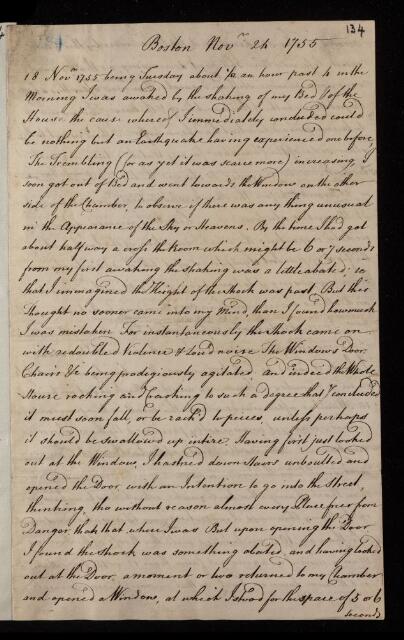 134
Boston Novr 24 1755
18 Novr 1755 being Tuesday about 1/2 an hour past 4 in the
Morning I was awaked by the shaking of my Bed & of the
House the cause whereof I immediately concluded could
be nothing but an Earthquake having experienced one before
The Trembling (for as yet it was scarce more) increasing I
soon got out of Bed and went towards the Window on the other
side of the Chamber, to observe if there was any thing unusual
in the Appearance of the Sky or Heavens. By the time I had got
about half way a cross the Room which might be 6 or 7 seconds
from my first awaking the shaking was a little abated; so
that I immagined the Height of the Shock was past, But this
Thought no sooner came into my Mind, than I found how much
I was mistaken For instantaneously the Shock came on
with redoubled Violence & Loud noise The Windows Door
Chairs &c being prodigiously agitated and indeed the Whole
House rocking and Cracking to such a degree that I concluded
it must soon fall, or be rack'd to pieces unless perhaps
it should be swallow'd up intire. Having first just looked
out at the Window, I hastned down Stairs unboulted and
opened the Door with an Intention to go into the Street,
thinking, tho without reason almost every Place freer from
Danger than that where I was But upon opening the Door
I found the Shock was something abated and having looked
out at the Door a moment or two returned to my Chamber
and opened a Window, at which I stood for the space of 5 or 6
seconds